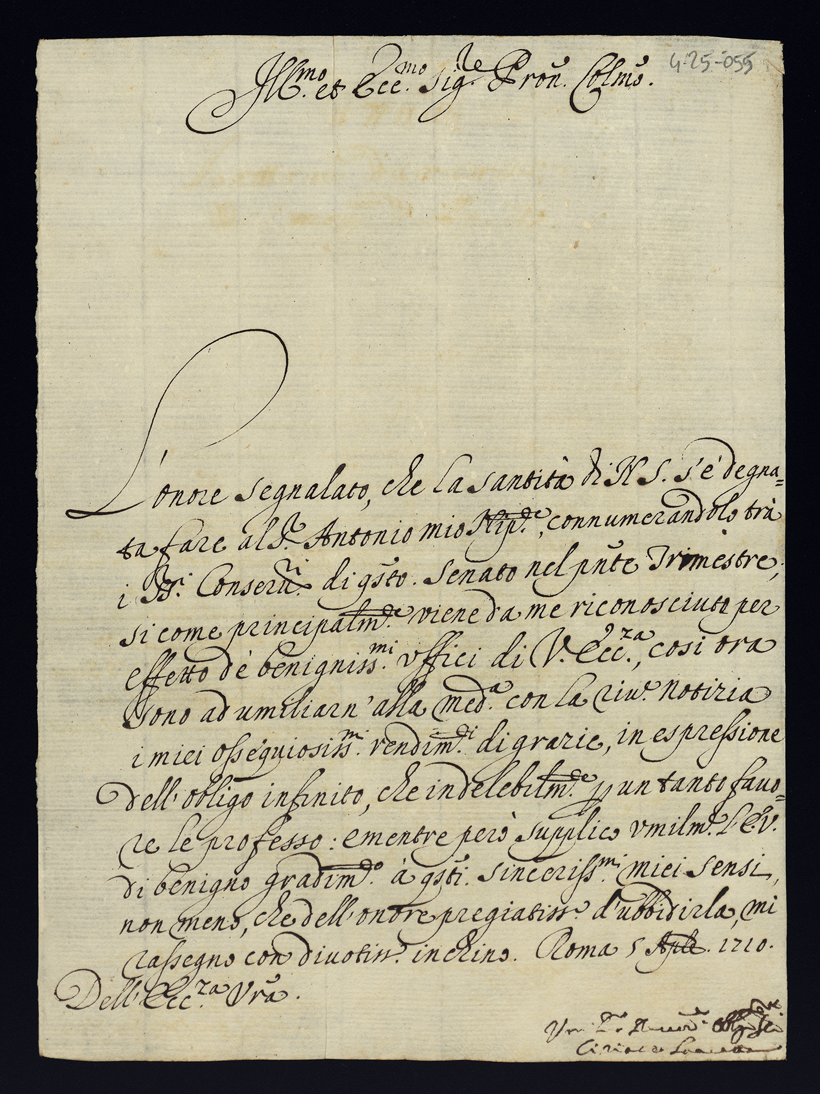 4-25-055
Ill.mo et Ecc.mo Sig.re Pron. Colmo.
L'onore segnalato, che la Santità di N S. s'è degna=
ta fare al S.r Antonio mio Nip.te, connumerandolo trà
i SS.ri Conseru.ri di qsto. Senato nel pnte Trimestre;
si come principalm.te viene da me riconosciuto per
effetto de' benigniss.mi vffici di V. Ecc.za, così ora
sono ad umiliarn' alla med.a con la riu.e notizia
i miei osseguiosiss.mi rendim.ti di grazie, in espressione
dell'obligo infinito, che indelebilm.te p un tanto fauo=
re le professo: e mentre però supplico vmilm.te l'E.V.
di benigno gradim.to à qsti. sinceriss.mi miei sensi,
non meno, che dell'onore pregiatiss.o d'ubbidirla, mi
rassegno con diuotiss.o inchino. Roma 5 Aple. 1710.
Dell'Ecc.za Vra.